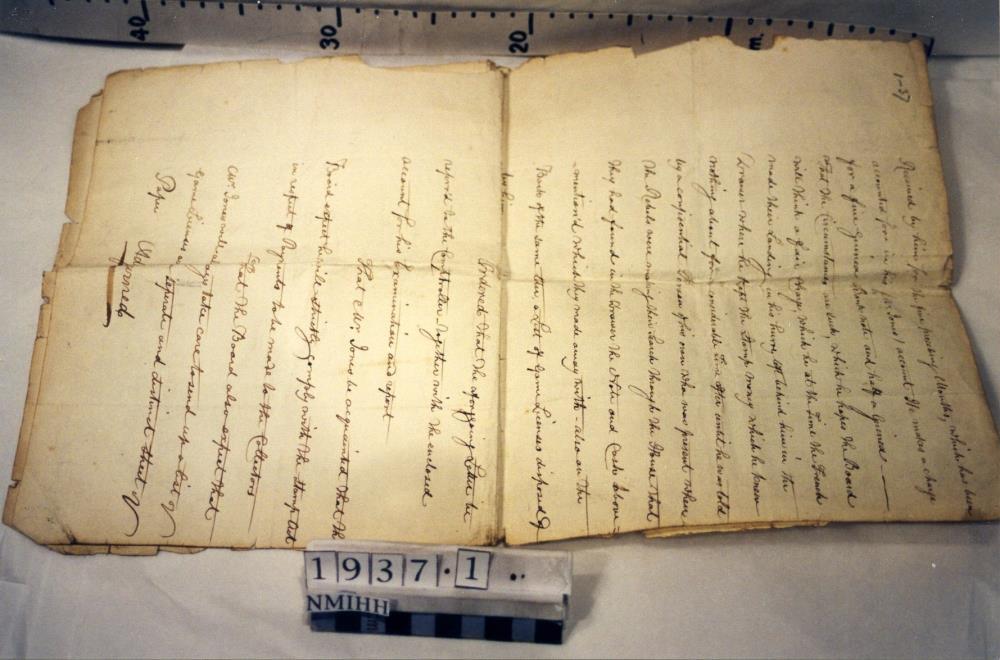 1-37
Received by him for the preceding Months, which has been
accounted for in his (Mr Jones) account He makes a charge
for a five Guinea Bank note and half a Guinea
That the Circumstances are such which he hopes the Board
will think a fair Charge, which he at the time the French
made their Landing in his hurry left behind him in the
Drawer where he kept the Stamp money which he knew
nothing about for a considerable time after until he was told
by a confidential Person of his own who was present when
the Rebels were making their Search through the House that
they had found in the Drawer the Note and Cash above
mentioned which they made away with also on the
Back of the same Letter, a List of Game Licenses disposed of
by him
Ordered That the foregoing Letter be
referred to the Comptroller together with the enclosed
account for his Examination and report
That Mr. Jones be acquainted that the
Board expect he will strictly comply with the Stamp Act
in respect of Payments to be made to the Collectors
That the Board also expect that
Mr. Jones will always take care to send up a list of
Game Licenses a separate and distinct sheet of
Paper
Signed
40
30
20
m.
1937.1
NMIHH